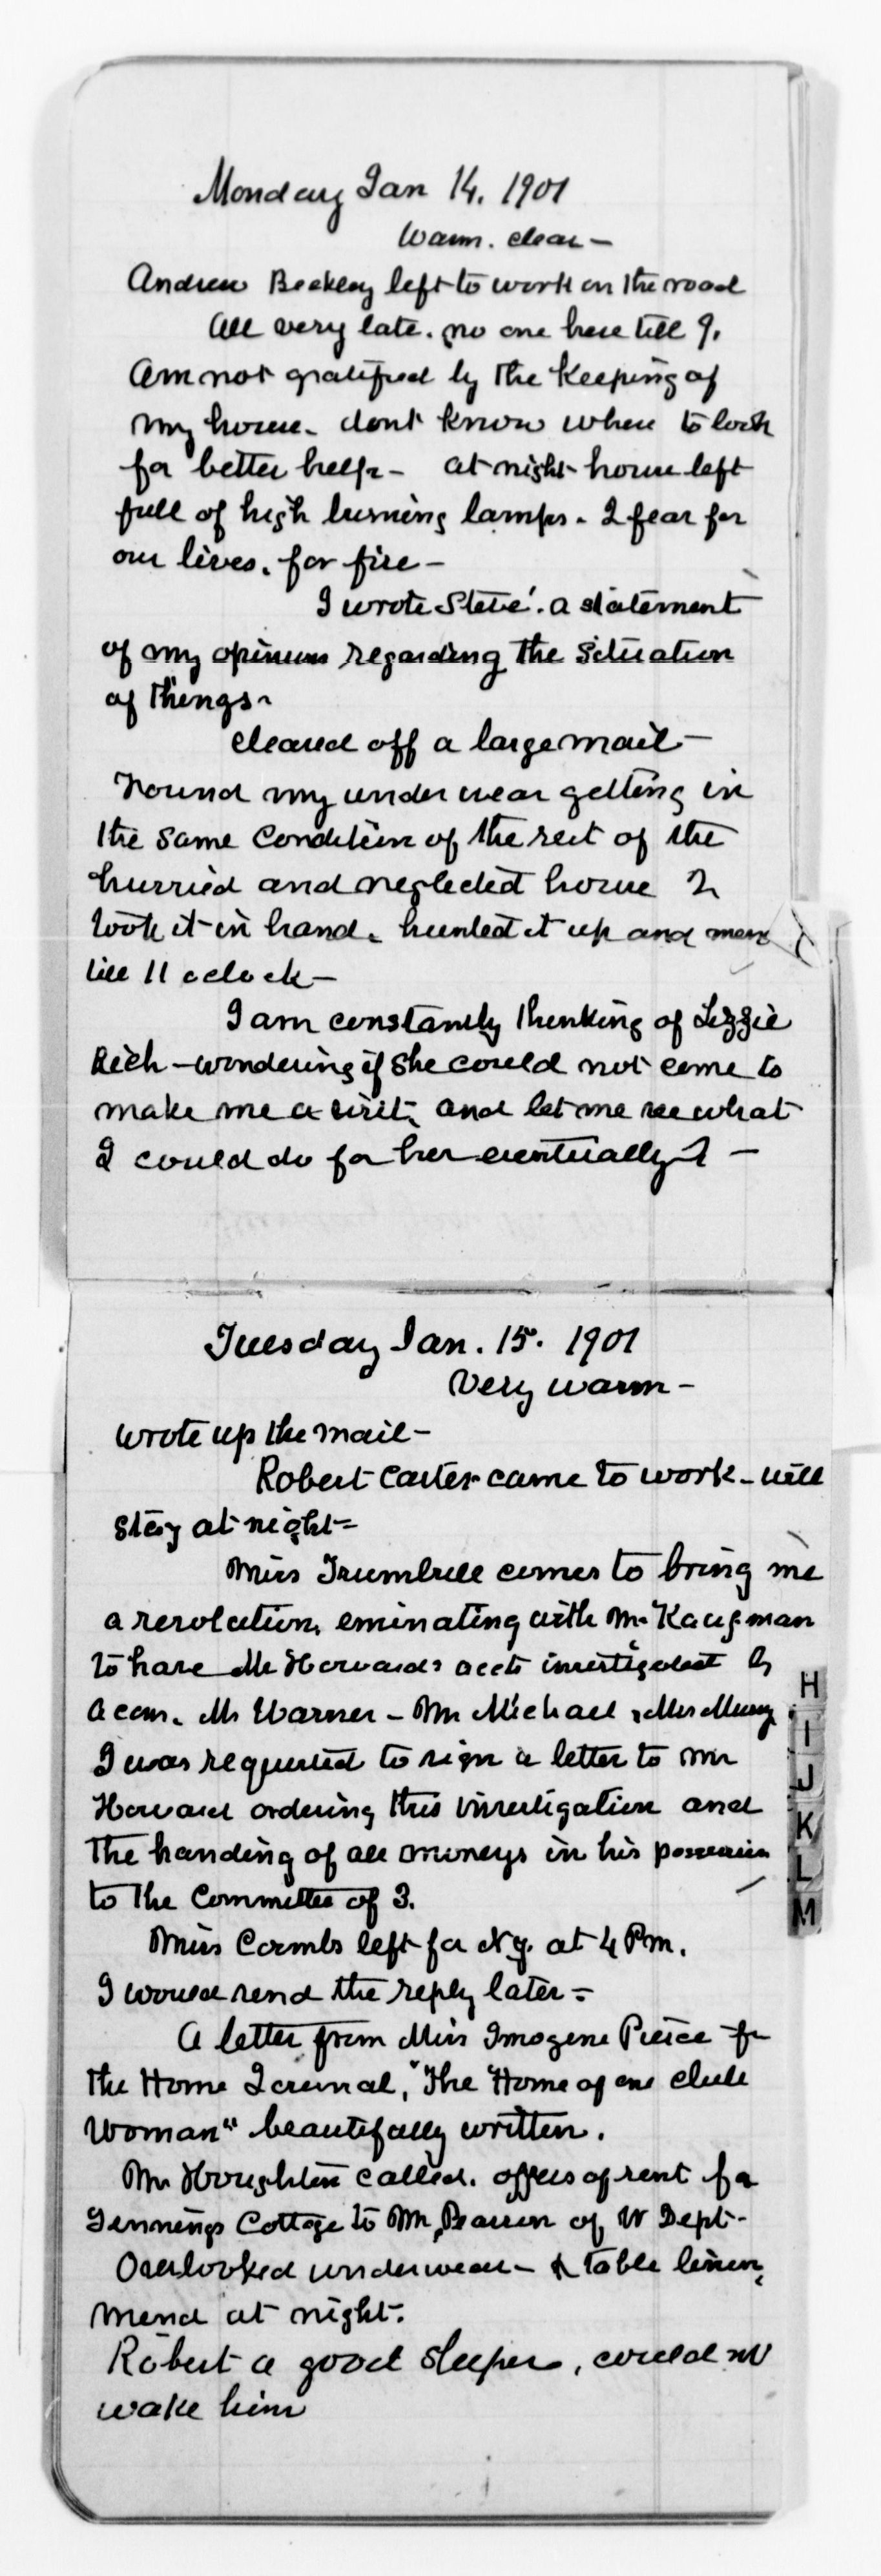 Monday Jan 14. 1901
Warm. clear —
Andrew Beckley left to work on the road
All very late. no one here till 9.
Am not gratified by the Keeping of
my house. dont know where to look
for better help — at night house left
full of high burning lamps. I fear for
our lives. for fire —
I wrote Steve. a statement
of my opinion regarding the situation
of things.
cleared off a large mail —
Found my under wear getting in
the same condition of the rest of the
hurried and neglected house I
took it in hand. hunted it up and mend
till 11 oclock —
I am constantly thinking of Lizzie
Rich — wondering if she could not come to
make me a visit, and let me see what
I could do for her eventually? —
Tuesday Jan. 15. 1901
Very warm —
Wrote up the mail —
Robert Carter came to work — will
stay at night —
Miss Trumbull comes to bring me
a resolution, eminating with Mr Kaufman
to have Mr Howards accts investigated by
a com. Mr Warner — Mr Michael
I was requested to sign a letter to Mr
Howard ordering this investigation and
the handing of all moneys in his possession
to the Committee of 3.
Miss Coombs left for N.Y. at 4 P.m.
I would send the reply later —
A letter from Miss Imogene Pierce for
the Home Journal, "The Home of one club
Woman" beautifully written.
Mr Houghton called. offers of rent for
Jennings Cottage to Mr Pearson of W Dept —
Overlooked underwear — & table linen,
mend at night.
Robert a good sleeper, could not
wake him
H
I
J
K
L
M